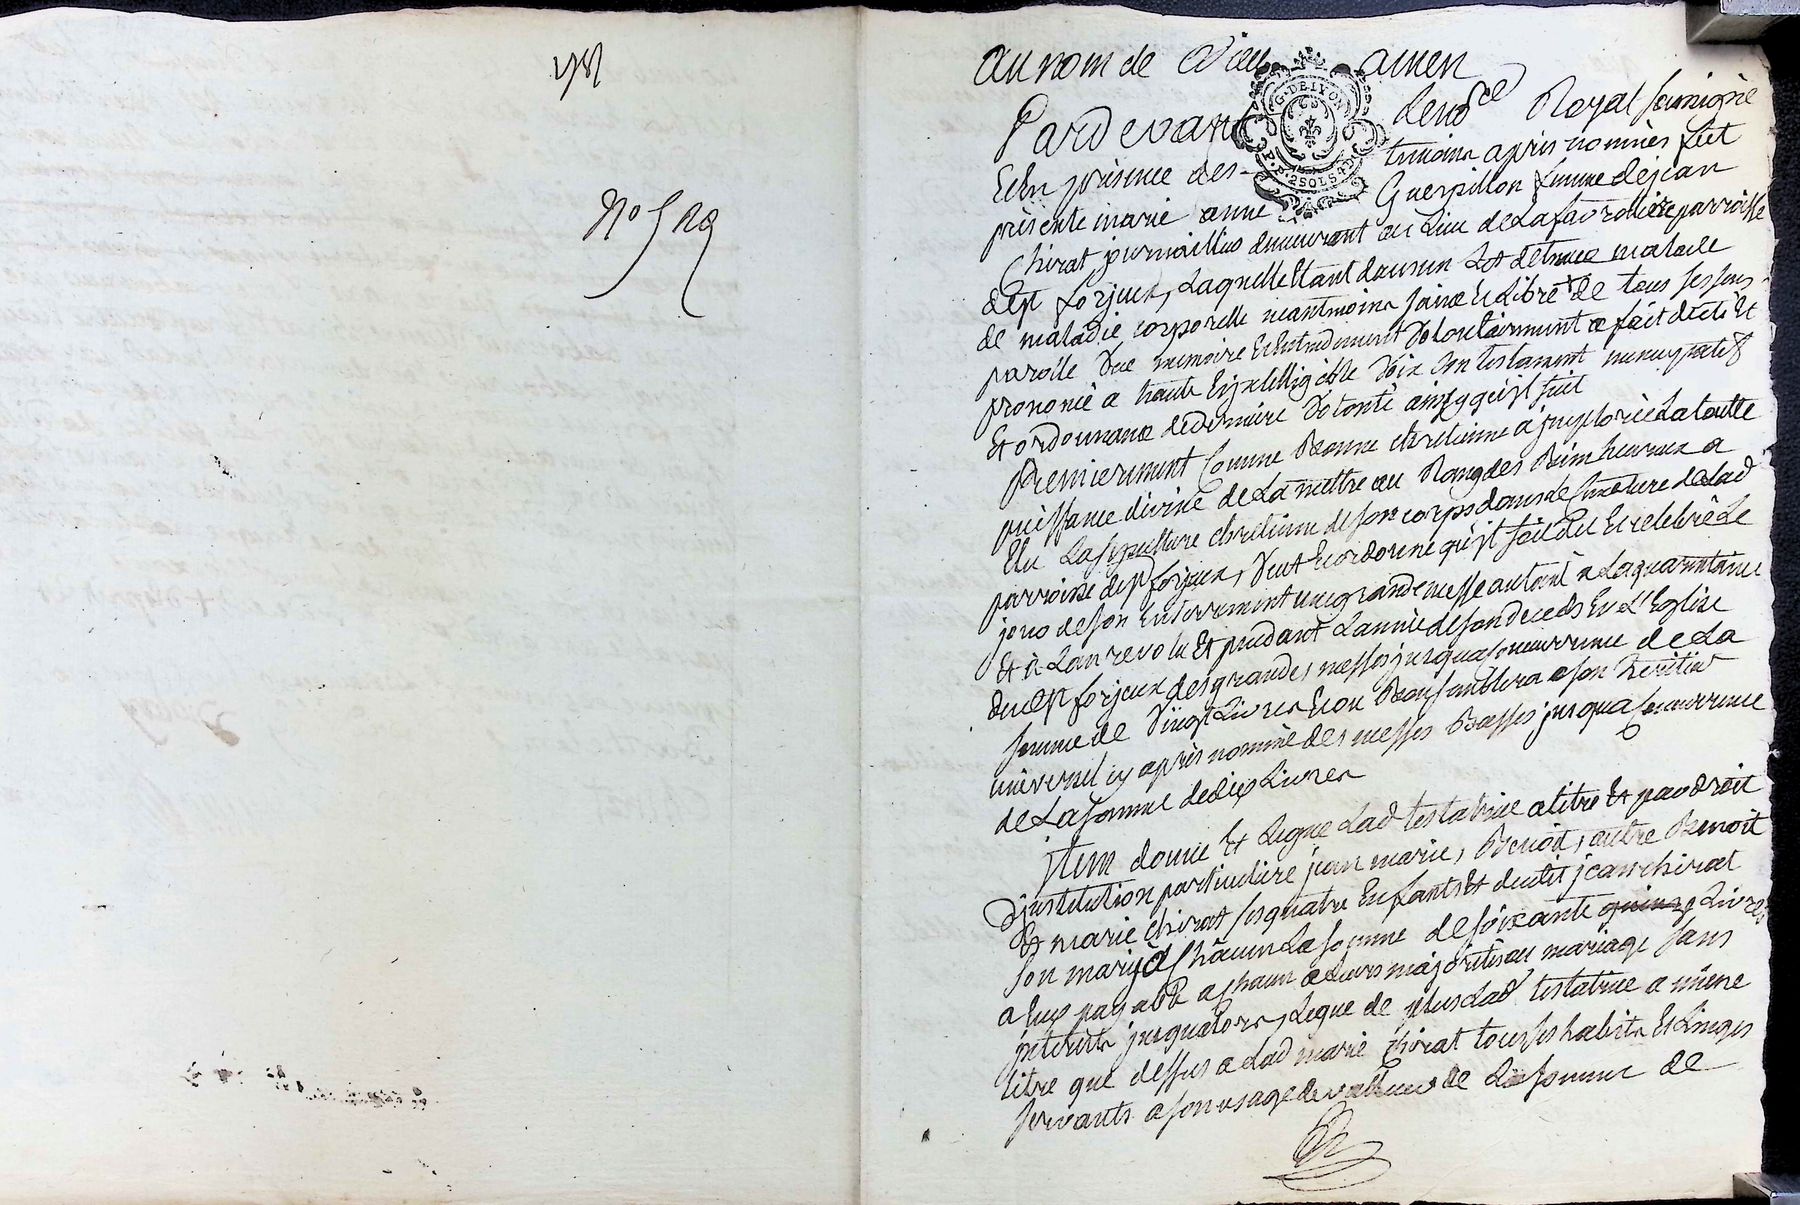 au nom de Dieu amen
Pardevant le no.re Royal soussigné
Et En présence des temoins après nommés fut
présente marie anne Guerpillon femme de jean
Chirat journaillier demeurant au Lieu de La favrotiere parroisse
de st forjeux, Laquelle Etant dans un Lit detenue malade
de maladie corporelle neantmoins saine Et Libre de tous ses sens
parolle Vue memoire Et Entendement Volontairement a fait dicté Et
prononcé a haute Et jntelligible Voix son testament nuncupatif
Et ordonnance de derniere Volonté ainsy qu'il suit
Premierement Comme Bonne chretienne a jmploré La toutte
puissance divine de La mettre au Rang des Bienheureux a
Elu La sepulture chretienne de son corps dans le Cimetiere de Lad
parroisse de st forjeux, Veut Et ordonne qu'il soit dit Et celebré Le
jour de son Enterrement une grande messe autant a La quarantaine
Et à L'an revolu Et pendant L'année de son deceds En L'Eglise
dud st forjeux des grandes messes jusqu'a Concurrence de La
somme de Vingt Livres Et ou Bon semblera a son heritier
universel cy après nommé des messes Basses jusqu'a Concurrence
de La somme de dix Livres
jtem donne Et Legue Lad testatrice a titre Et par droit
D'jnstitution particuliere jean marie, Benoit, autre Benoit
Et marie Chirat ses quatre Enfants Et dudit jean chirat
son mary a Chacun La somme de soixante quinze Livres
a Eux payable a chacun a Leurs majorités ou mariage sans
jnterets jusqu'alors, Legue de plus Lad testatrice a même
titre que dessus a Lad marie Chirat tous ses habits Et Linges
servants a son usage de valleur de La somme de